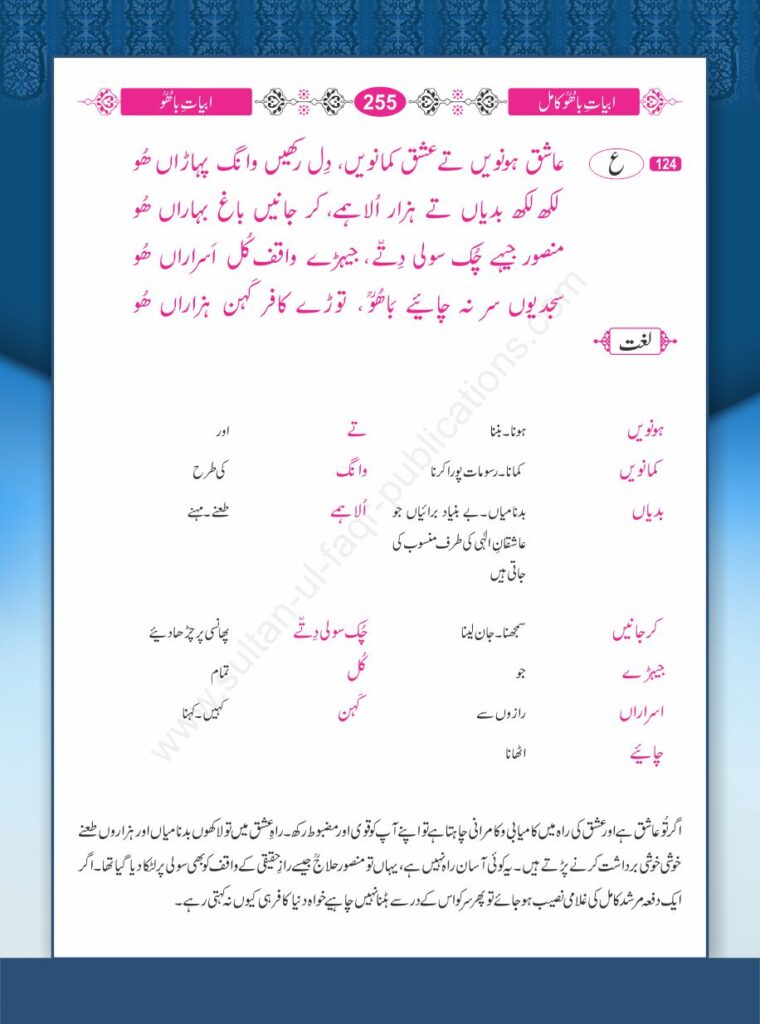 ابیاتِ باھُوؒ کامل 255 ابیاتِ باھُوؒ
124 ع
عاشق ہونویں تے عشق کمانویں، دِل رکھیں وانگ پہاڑاں ھُو
لکھ لکھ بدیاں تے ہزار اُلاہمے، کر جانیں باغ بہاراں ھُو
منصور جیہے چُک سولی دِتّے، جیہڑے واقف کُل اَسراراں ھُو
سجدیوں سر نہ چائیے بَاھُوؒ، توڑے کافر کَہن ہزاراں ھُو
لغت
ہونویں ہونا۔ بننا تے اور
کمانویں کمانا۔ رسومات پورا کرنا وانگ کی طرح
بدیاں بدنامیاں۔ بے بنیاد برائیاں جو اُلاہمے طعنے۔ مہنے
عاشقانِ الٰہی کی طرف منسوب کی
جاتی ہیں
کر جانیں سمجھنا۔ جان لینا چُک سولی دِتّے پھانسی پر چڑھا دیئے
جیہڑے جو کُل تمام
اسراراں رازوں سے کَہن کہیں۔ کہنا
چائیے اٹھانا
اگر تُو عاشق ہے اور عشق کی راہ میں کامیابی و کامرانی چاہتا ہے تو اپنے آپ کو قوی اور مضبوط رکھ۔ راہِ عشق میں تو لاکھوں بدنامیاں اور ہزاروں طعنے
خوشی خوشی برداشت کرنے پڑتے ہیں۔ یہ کوئی آسان راہ نہیں ہے، یہاں تو منصور حلاجؒ جیسے رازِ حقیقی کے واقف کو بھی سولی پر لٹکا دیا گیا تھا۔ اگر
ایک دفعہ مرشد کامل کی غلامی نصیب ہو جائے تو پھر سر کو اس کے در سے ہٹنا نہیں چاہیے خواہ دنیا کافر ہی کیوں نہ کہتی رہے۔
www.sultan-ul-faqr-publications.com